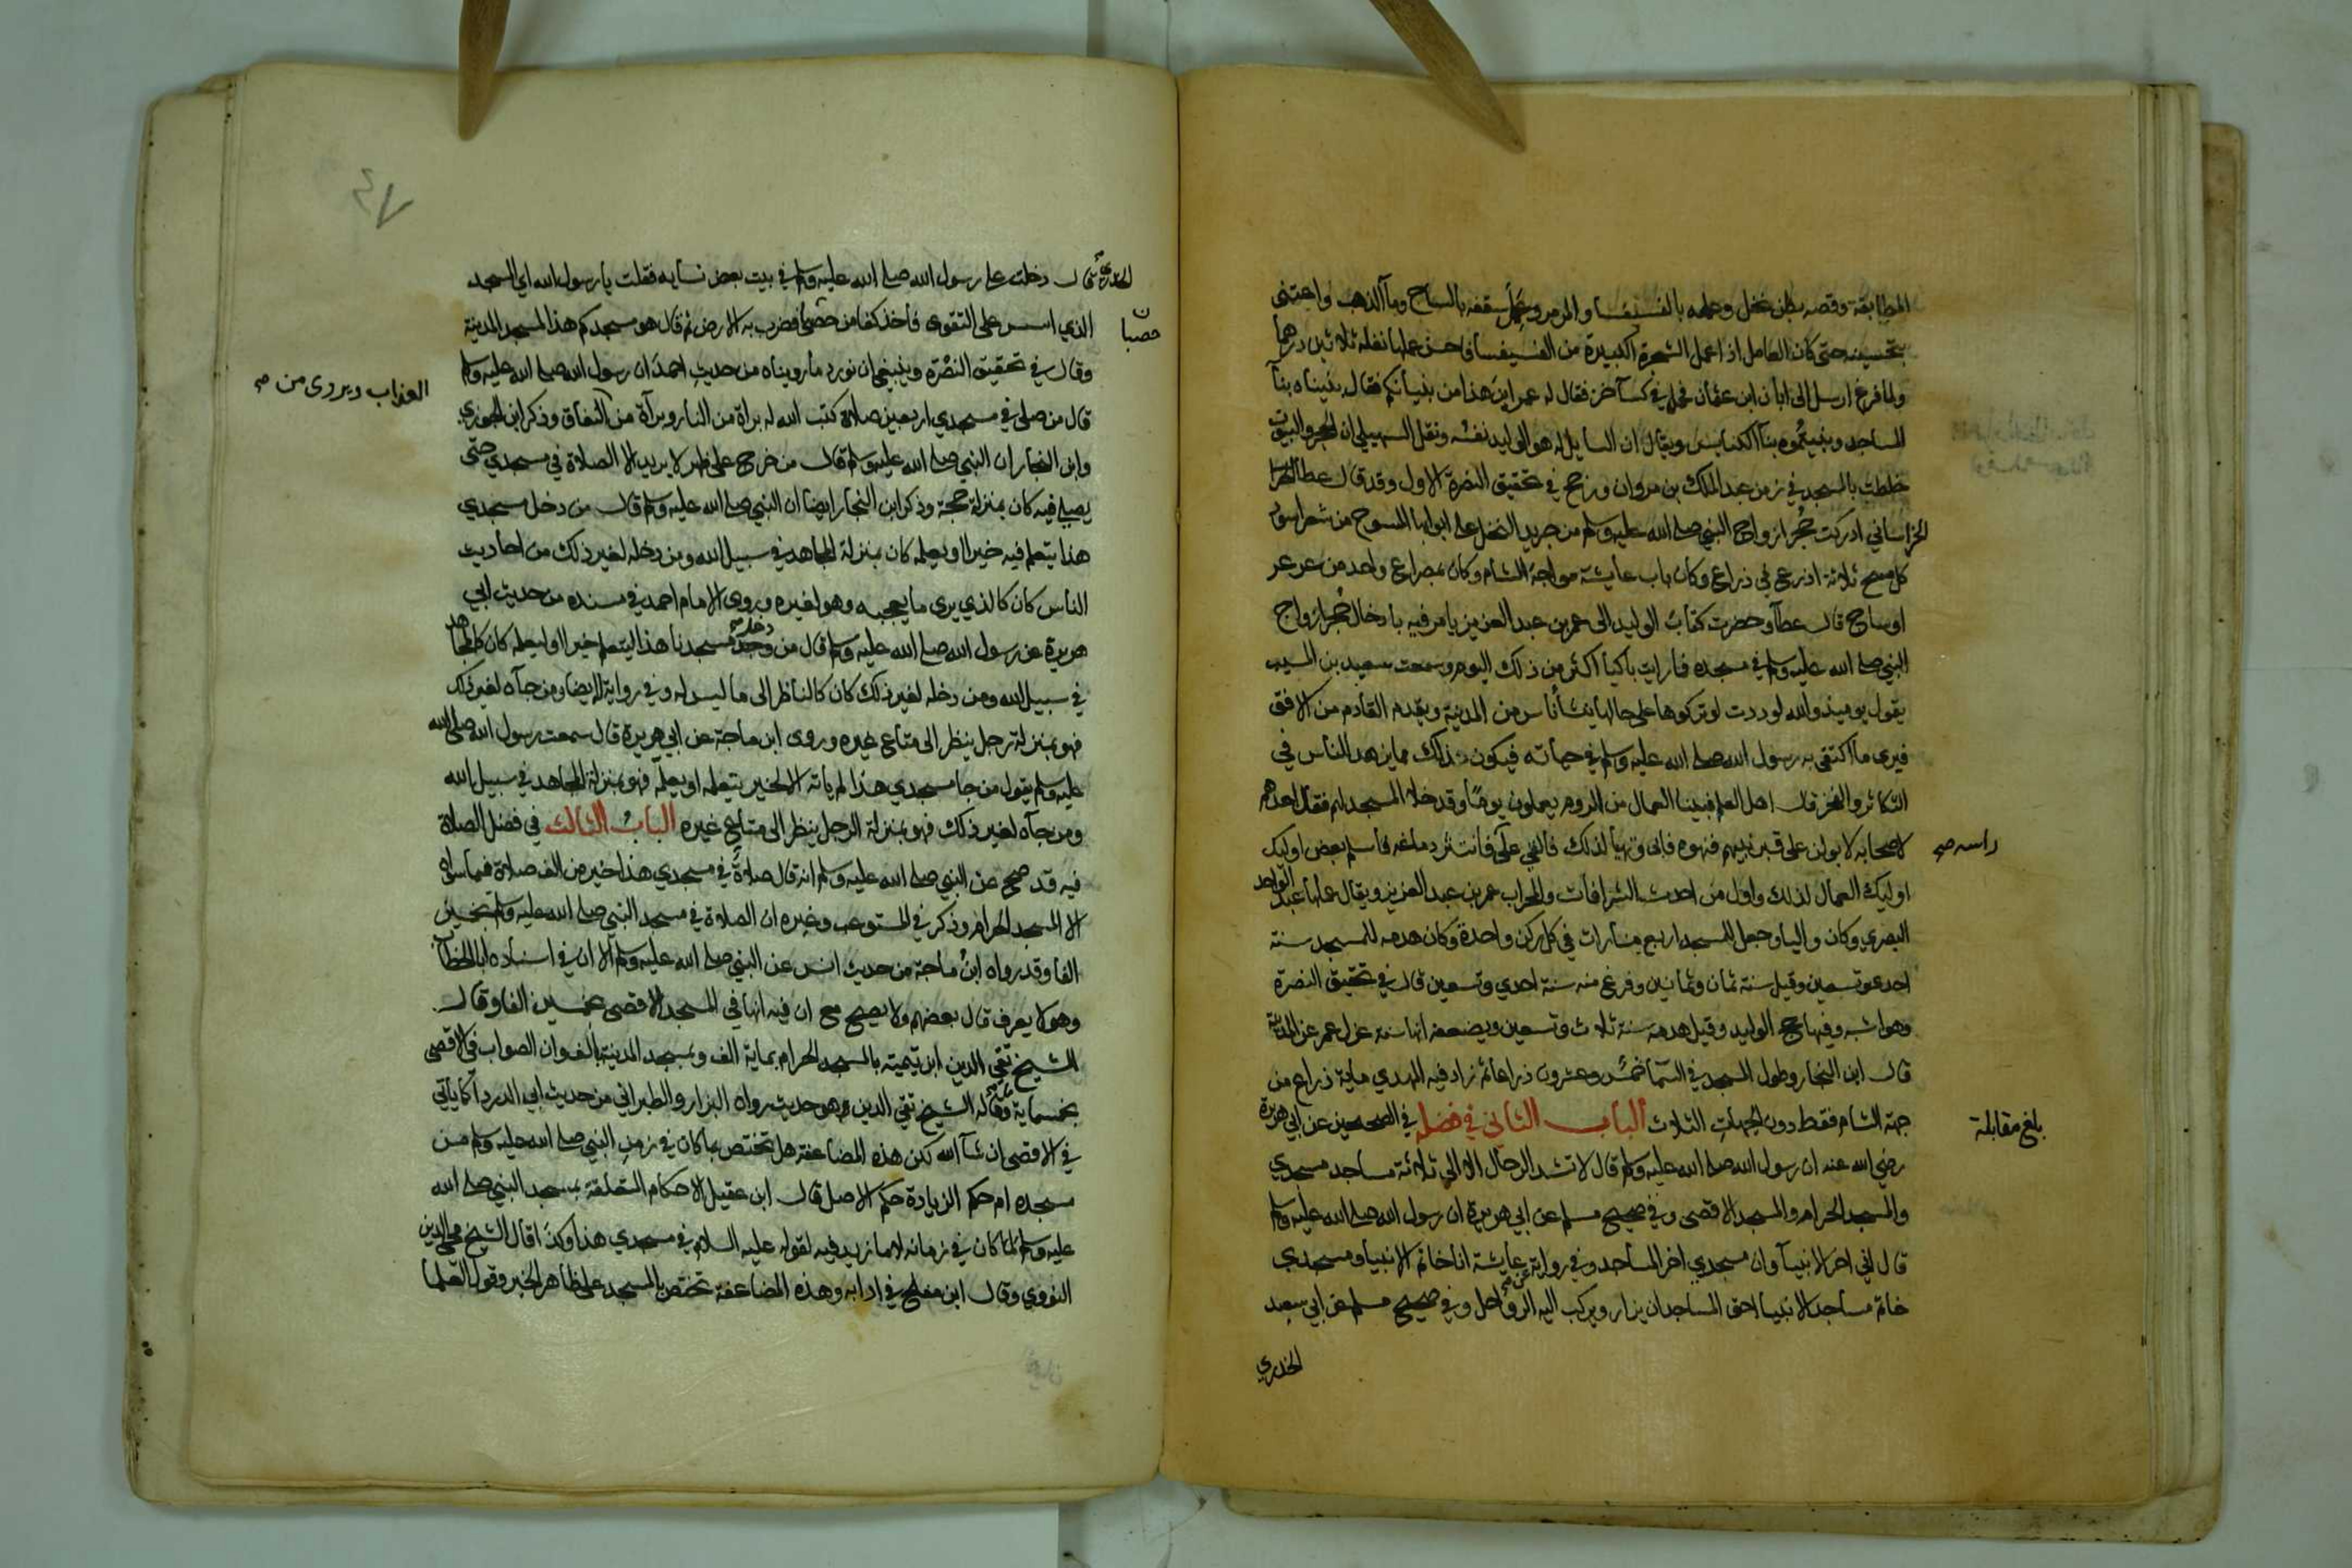 المطابقة وقصه بطن نخل وعمله بالفسيفسا والمرمر وعمل سقفه بالساج وما الذهب واعتنى
بتحسينه حتى كان العامل اذا عمل الشجرة الكبيرة من الفسيفسا فاحسن عملها نفله ثلاثين درهما
ولما فرغ ارسل الى ابان ابن عثمان فحمل في كسا خز فقال له عمر اين هذا من بنيانكم فقال بنيناه بنآ
المساجد وبنيتموه بنآ الكنايس ويقال ان السايل له هو الوليد نفسه ونقل السهيلي ان الحجر والبيوت
خلطت بالمسجد في زمن عبد الملك بن مروان ورجح في تحقيق النصرة الاول وقد قال عطا
الخراساني ادركت حجر ازواج النبي صلى الله عليه وسلم من جريد النخل على ابوابها المسوح من شعر اسود
كل مسح ثلاثة اذرع في ذراع وكان باب عايشة مواجه الشام وكان بمصراع واحد من عرعر
او ساج قال عطآ وحضرت كتاب الوليد الى عمر بن عبد العزيز يامر فيه بادخال حجر ازواج
النبي صلى الله عليه وسلم في مسجده فما رايت باكيا اكثر من ذلك اليوم وسمعت سعيد بن المسيب
يقول يوميذ والله لوددت لو تركوها على حالها ينشأ ناس من المدينة ويقدم القادم من الافق
فيرى ما اكتفى به رسول الله صلى الله عليه وسلم في حياته فيكون ذلك مما يزهد الناس في
التكاثر والفخر قال اهل العلم فبينا العمال من الروم يعملون يوما وقد خلا المسجد لهم فقال احدهم
لاصحابه لابولن على قبر نبيهم فنهوه فابى وتهيأ لذلك فالقي على فانتثر دماغه فاسلم بعض اوليك
راسه صح
اوليك العمال لذلك واول من احدث الشرافات والمحراب عمر بن عبد العزيز ويقال عملها عبد الواحد
البصري وكان واليا وجعل للمسجد اربع منارات في كل ركن واحدة وكان هدمه للمسجد سنة
احدى وتسعين وقيل سنة ثمان وثمانين وفرغ منه سنة احدي وتسعين قال في تحقيق النصرة
وهو اشبه وفيها حج الوليد وقيل هدمه سنة ثلاث وتسعين ويضعفه انها سنة عزل عمر عن المدينة
قال ابن النجار وطول المسجد في السما خمس وعشرون ذراعا ثم زاد فيه المهدي ماية ذراع من
جهة الشام فقط دون الجهات الثلاث الباب الثاني في فضله في الصحيحين عن ابي هريرة
بلغ مقابلة
رضي الله عنه ان رسول الله صلى الله عليه وسلم قال لا تشد الرحال الا الى ثلاثة مساجد مسجدي
والمسجد الحرام والمسجد الاقصى وفي صحيح مسلم عن ابي هريرة ان رسول الله صلى الله عليه وسلم
قال اني اخر الانبيآ وان مسجدي اخر المساجد وفي رواية عن عايشة انا خاتم الانبيا ومسجدي
خاتم مساجد الانبيا احق المساجد ان يزار ويركب اليه الرواحل وفي صحيح مسلم عن ابي سعيد
الخدري
٤٧
الخدري قال دخلت على رسول الله صلى الله عليه وسلم في بيت بعض نسايه فقلت يا رسول الله اي المسجد
الذي اسس على التقوى فاخذ كفا من حصبا فضرب به الارض ثم قال هو مسجدكم هذا لمسجد المدينة
حصبا
وقال في تحقيق النصرة وينبغي ان نورد ما رويناه من حديث احمد ان رسول الله صلى الله عليه وسلم
العذاب ويروى من صح
قال من صلى في مسجدي اربعين صلاة كتب الله له براة من النار وبرآة من النفاق وذكر ابن الجوزي
وابن النجار ان النبي صلى الله عليه وسلم قال من خرج على طهر لا يريد الا الصلاة في مسجدي حتى
يصلي فيه كان بمنزلة حجة وذكر ابن النجار ايضا ان النبي صلى الله عليه وسلم قال من دخل مسجدي
هذا يتعلم فيه خيرا او يعلمه كان بمنزلة المجاهد في سبيل الله ومن دخله لغير ذلك من احاديث
الناس كان كالذي يرى ما يعجبه وهو لغيره وروى الامام احمد في مسنده من حديث ابي
هريرة عن رسول الله صلى الله عليه وسلم قال من دخل مسجدنا هذا ليتعلم خيرا او ليعلمه كان كالمجاهد
في سبيل الله ومن دخله لغير ذلك كان كالناظر الى ما ليس له وفي رواية له ايضا ومن جآه لغير ذلك
فهو بمنزلة رجل ينظر الى متاع غيره وروى ابن ماجة عن ابي هريرة قال سمعت رسول الله صلى الله
عليه وسلم يقول من جا مسجدي هذا لم ياته الا لخير يتعلمه او يعلمه فهو بمنزلة المجاهد في سبيل الله
ومن جآه لغير ذلك فهو بمنزلة الرجل ينظر الى متاع غيره الباب الثالث في فضل الصلاة
فيه قد صح عن النبي صلى الله عليه وسلم انه قال صلاة في مسجدي هذا خير من الف صلاة فيما سواه
الا المسجد الحرام وذكر في المستوعب وغيره ان الصلاة في مسجد النبي صلى الله عليه وسلم بخمسين
الفا وقد رواه ابن ماجة من حديث انس عن النبي صلى الله عليه وسلم الا ان في اسناده ابا الخطاب
وهو لا يعرف قال بعضهم ولا يصح مع ان فيه انها في المسجد الاقصى بخمسين الفا وقال
الشيخ تقي الدين ابن تيمية بالمسجد الحرام بماية الف وبمسجد المدينة بالف وان الصواب في الاقصى
بخمسماية وما قاله الشيخ تقي الدين هو حديث رواه البزار والطبراني من حديث ابي الدردا كما ياتي
في الاقصى ان شآ الله لكن هذه المضاعفة هل تختص بما كان في زمن النبي صلى الله عليه وسلم من
مسجده ام حكم الزيادة حكم الاصل قال ابن عقيل الاحكام المتعلقة بمسجد النبي صلى الله
عليه وسلم لما كان في زمانه لا ما زيد فيه لقوله عليه السلام في مسجدي هذا وكذا قال الشيخ محي الدين
النووي وقال ابن مفلح في ادابه وهذه المضاعفة تختص بالمسجد على ظاهر الخبر وقول العلما